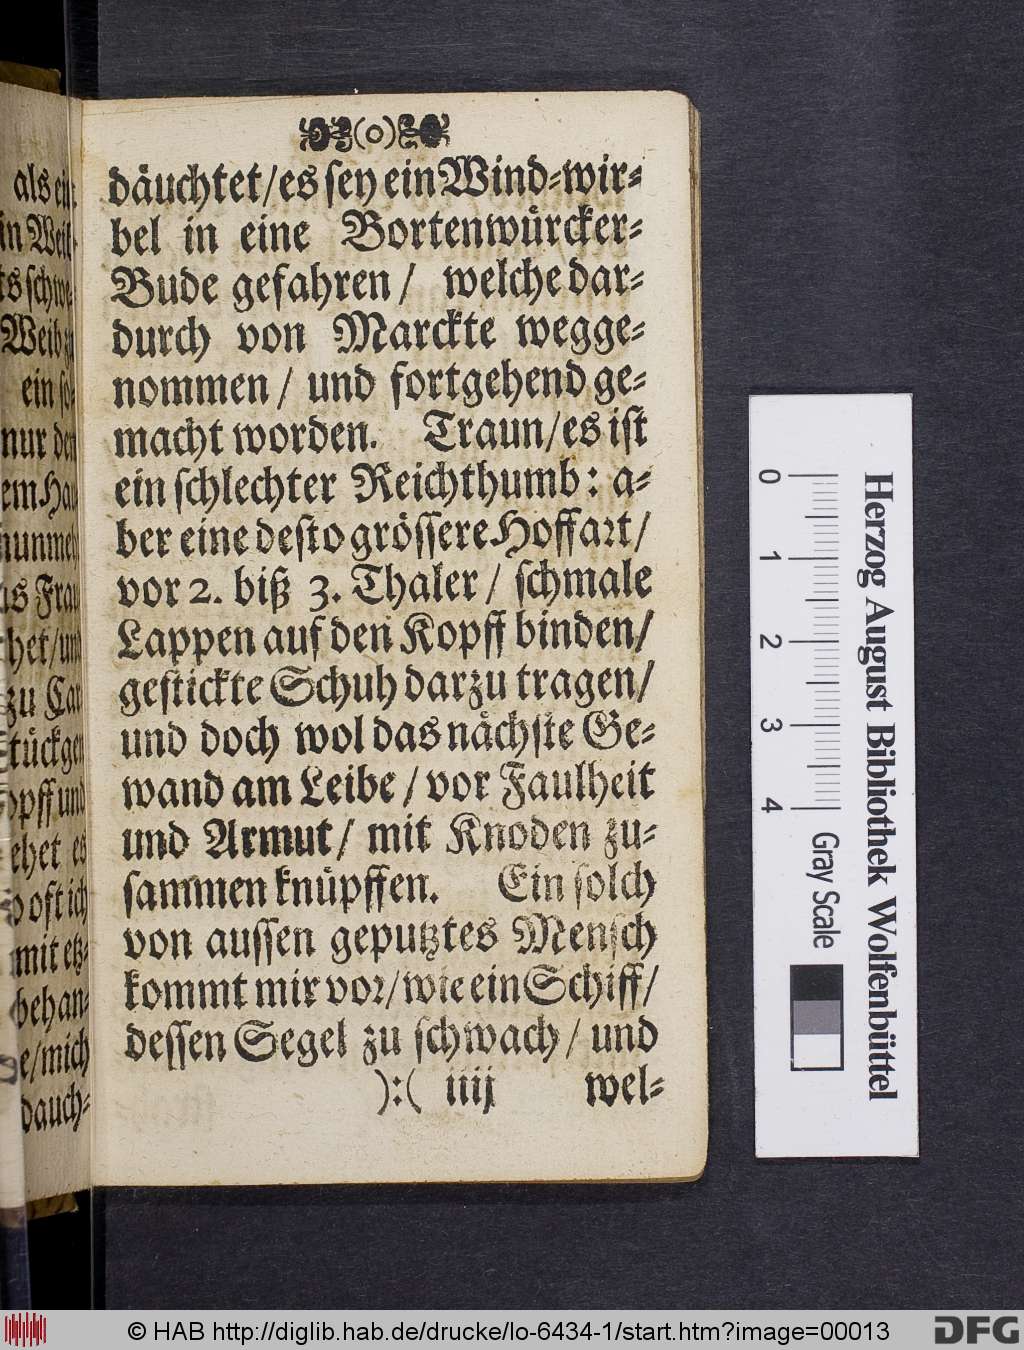 (o)
däuchtet/es ſey ein Wind-wir-
bel in eine Bortenwürcker-
Bude gefahren / welche dar-
durch von Marckte wegge-
nommen / und fortgehend ge-
macht worden. Traun/es iſt
ein ſchlechter Reichthumb: a-
ber eine deſto gröſſere Hoffart/
vor 2. biß 3. Thaler / ſchmale
Lappen auf den Kopff binden/
geſtickte Schuh darzu tragen/
und doch wol das nächſte Ge-
wand am Leibe / vor Faulheit
und Armut / mit Knoden zu-
ſammen knüpffen. Ein ſolch
von auſſen geputztes Menſch
kommt mir vor/wie ein Schiff/
deſſen Segel zu ſchwach / und
):( iiij wel-
als ein
in Weib
ſchwe
Weib
ein ſo-
nur den
em
nunmeh
Frau
het/und
zu
tückgen
opff und
ehet es
ſo oft ich
mit etz-
behan-
e/mich
dauch-
0 1 2 3 4
Herzog August Bibliothek Wolfenbüttel
Gray Scale
© HAB http://diglib.hab.de/drucke/lo-6434-1/start.htm?image=00013
DFG